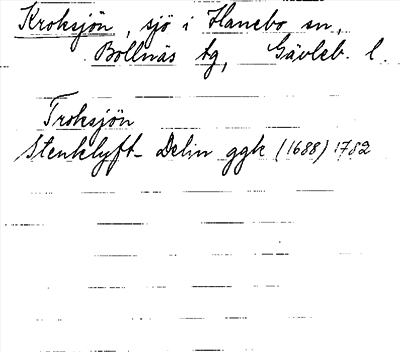 Kroksjön, sjö i Hanebo sn,
Bollnäs tg, Gävleb. l.
Troksjön
Stenklyft- Delin ggk (1688) 1782